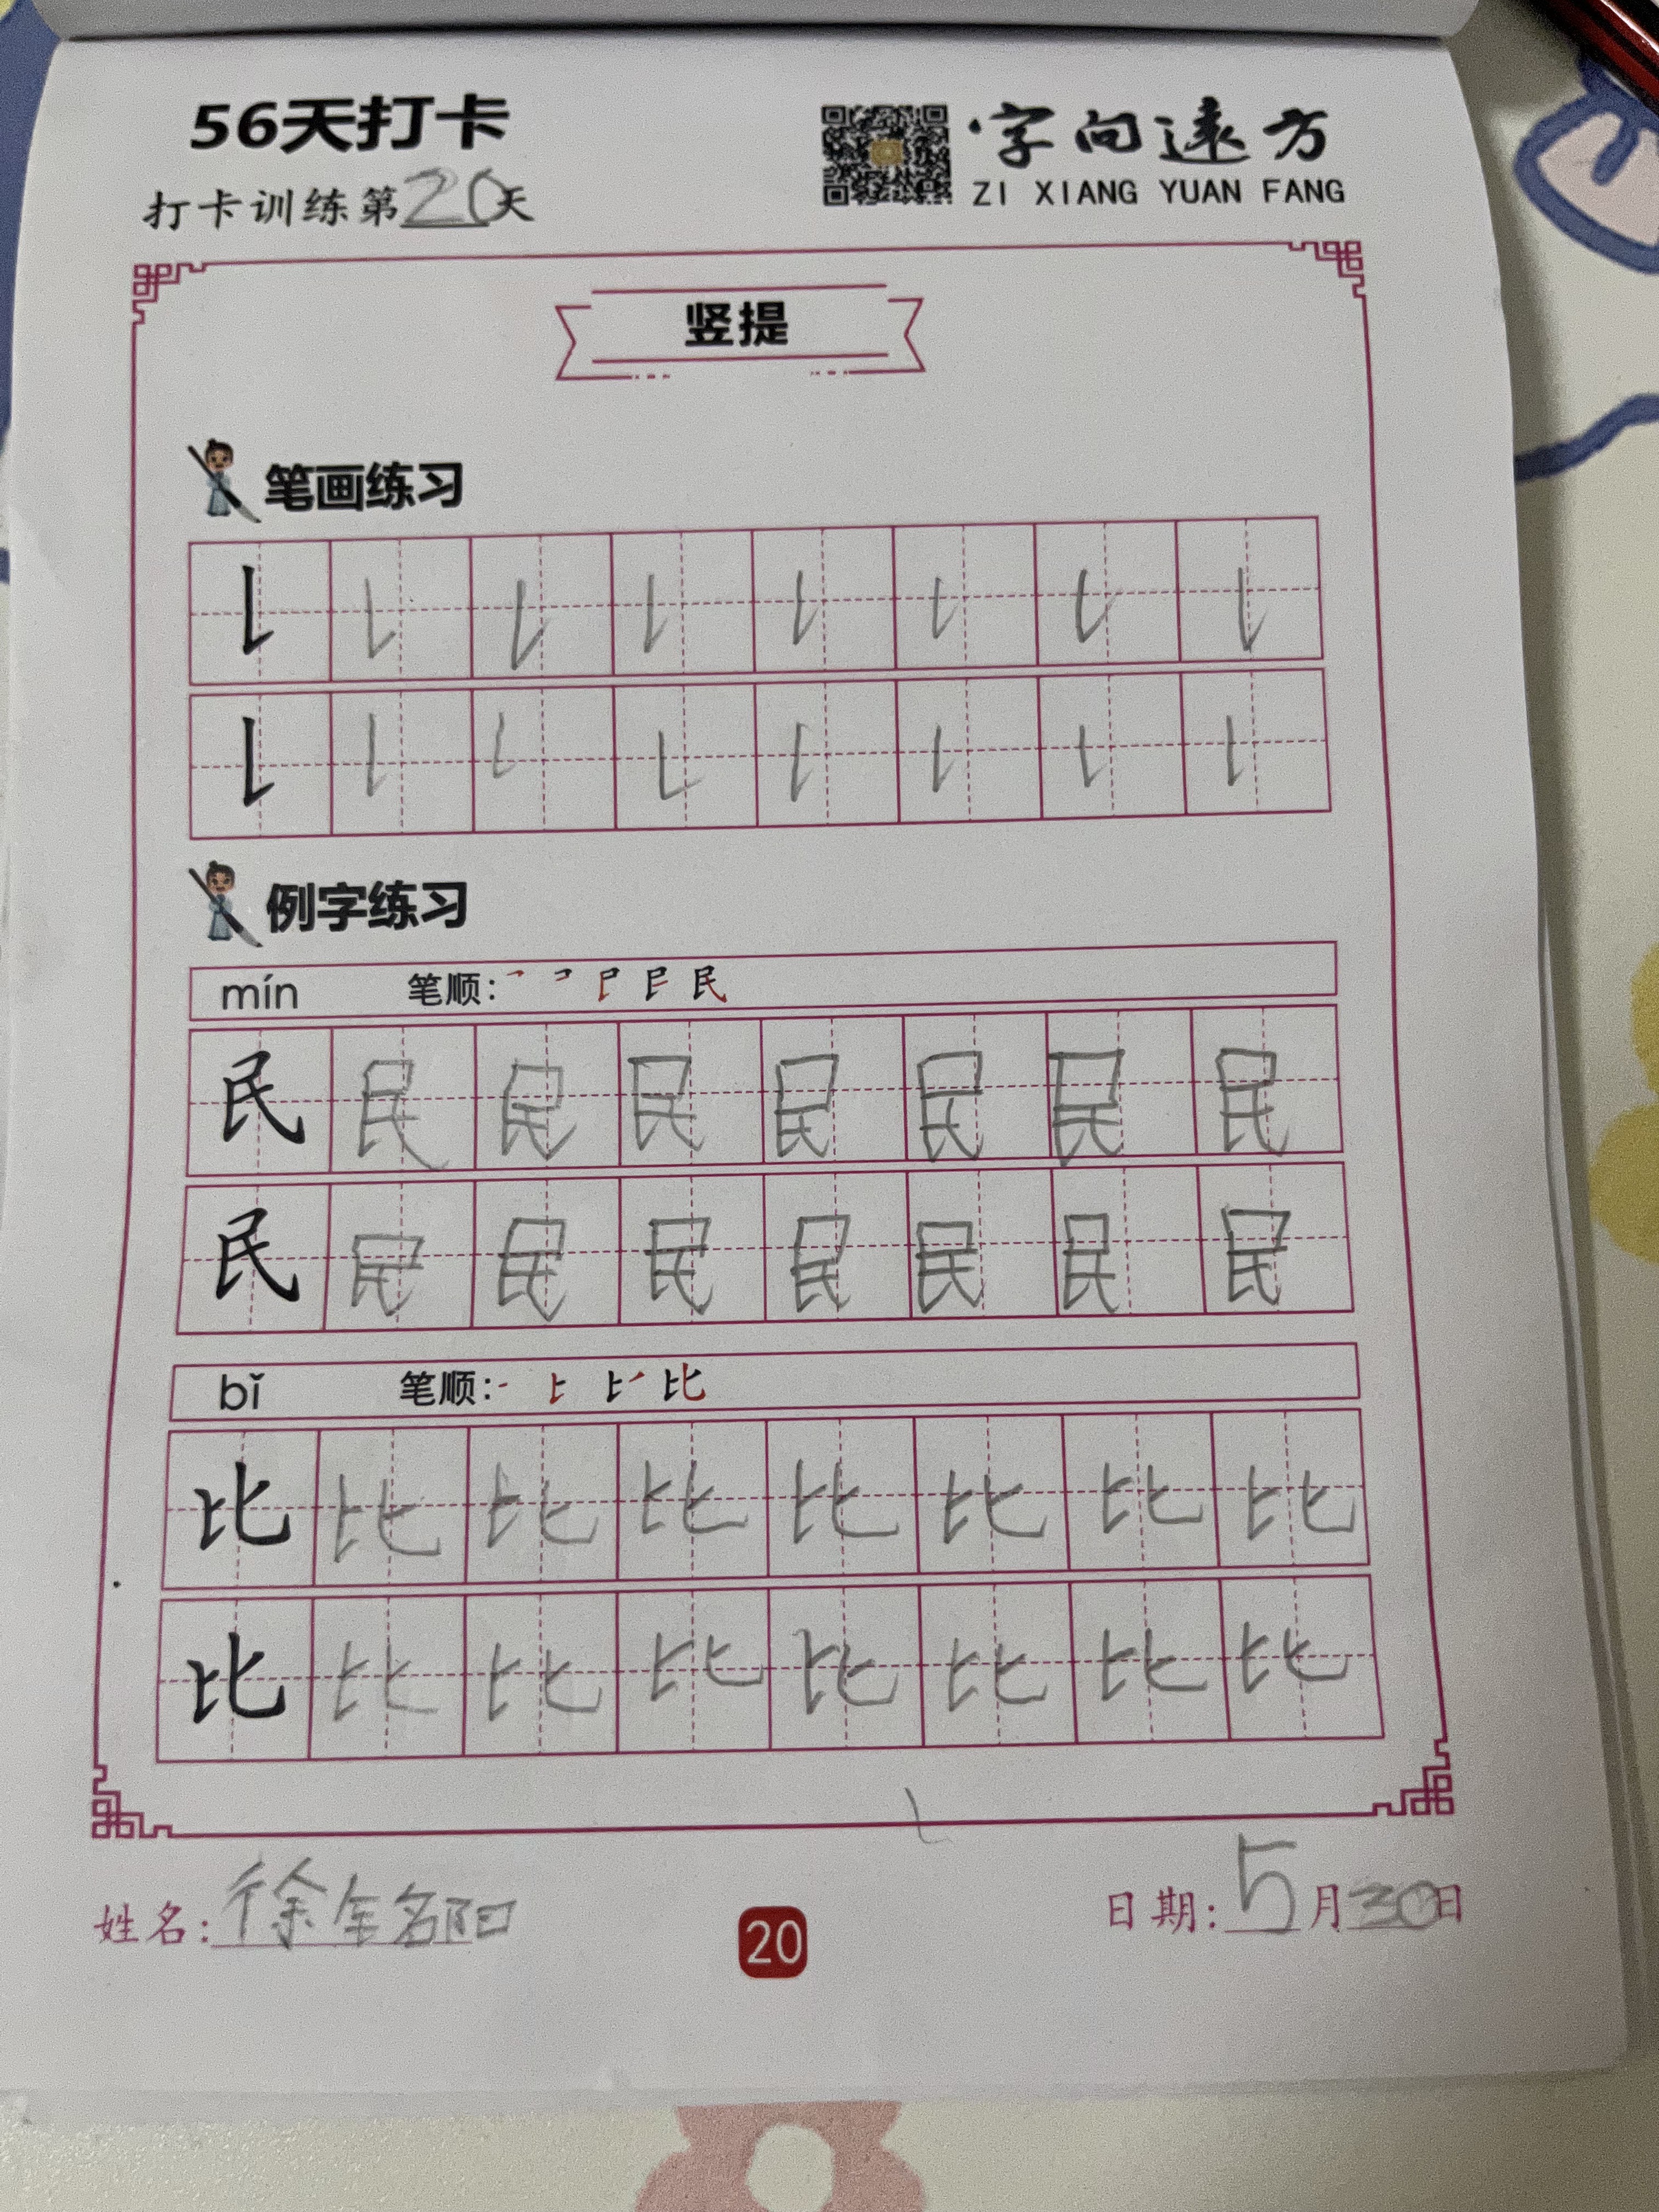 56天打卡
字向远方
打卡训练第20天
ZI XIANG YUAN FANG
竖提
笔画练习
例字练习
mín 笔顺:
民 民 民 民 民 民 民 民
民 民 民 民 民 民 民 民
bǐ 笔顺:
比 比 比 比 比 比 比 比
比 比 比 比 比 比 比 比
姓名:徐
20
日期:5月30日